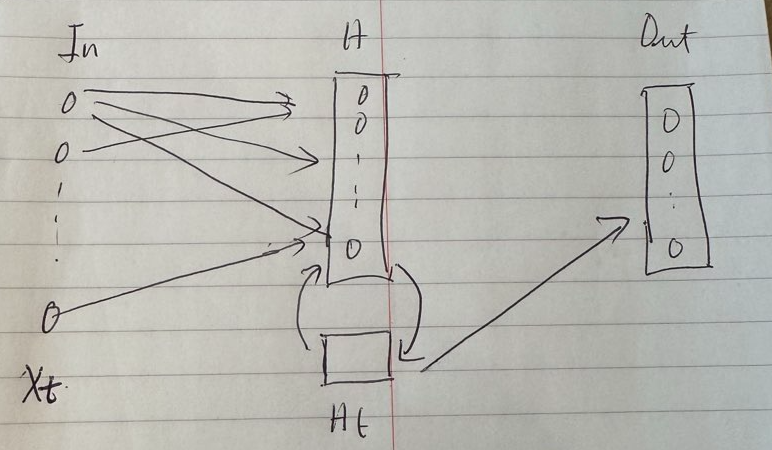 In H Out
Xt
Ht